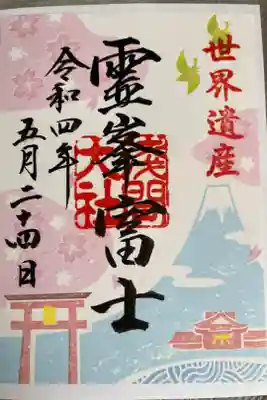 世界遺産
霊峯富士
浅間
大社
令和四年
五月二十四日